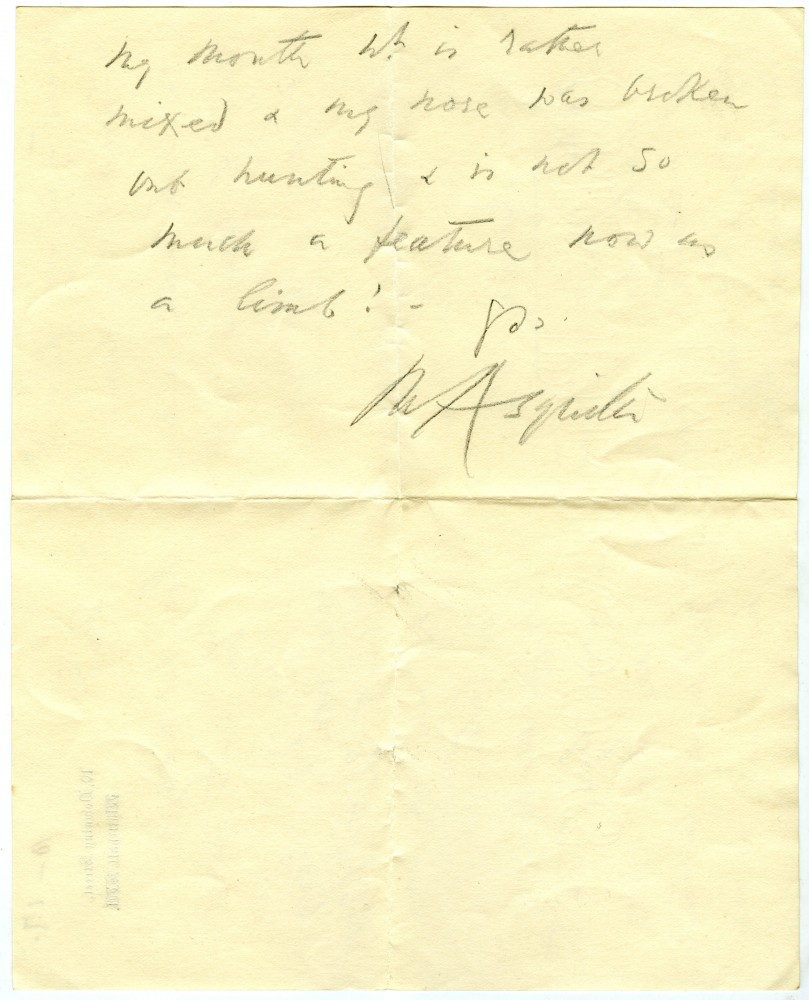 my mouth wh. is rather
mixed & my nose was broken
out hunting & is not so
much a feature now as
a limb! –
yrs.
M Asquith
10, Downing Street,